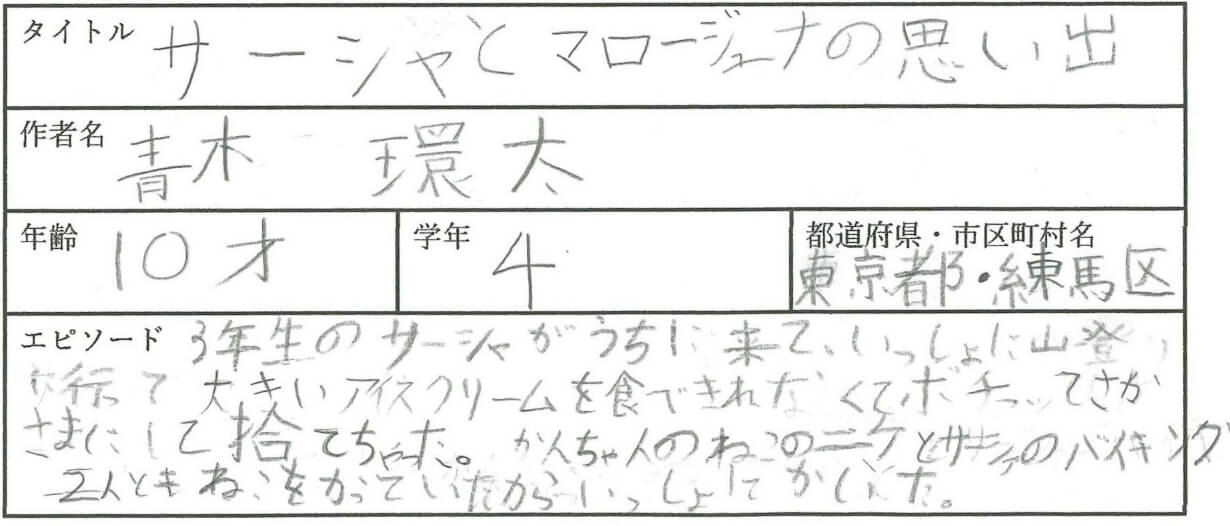 タイトル サーシャとマロージェナの思い出
作者名 青木 環太
年齢 10才
学年 4
都道府県・市区町村名
東京都・練馬区
エピソード 3年生のサーシャがうちに来て、いっしょに山登り
行って 大きいアイスクリームを食べきれなくてボチャッてさか
さまにして捨てちゃった。かんちゃんのねこのニケとサーシャのバイキング
2人ともねこをかっていたからいっしょに